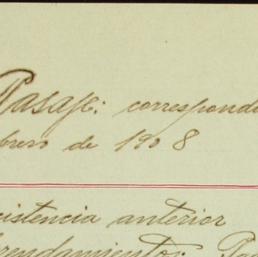 Pasaje: correspondi
brero de 1908
xistencia anterior
rrendamientos: